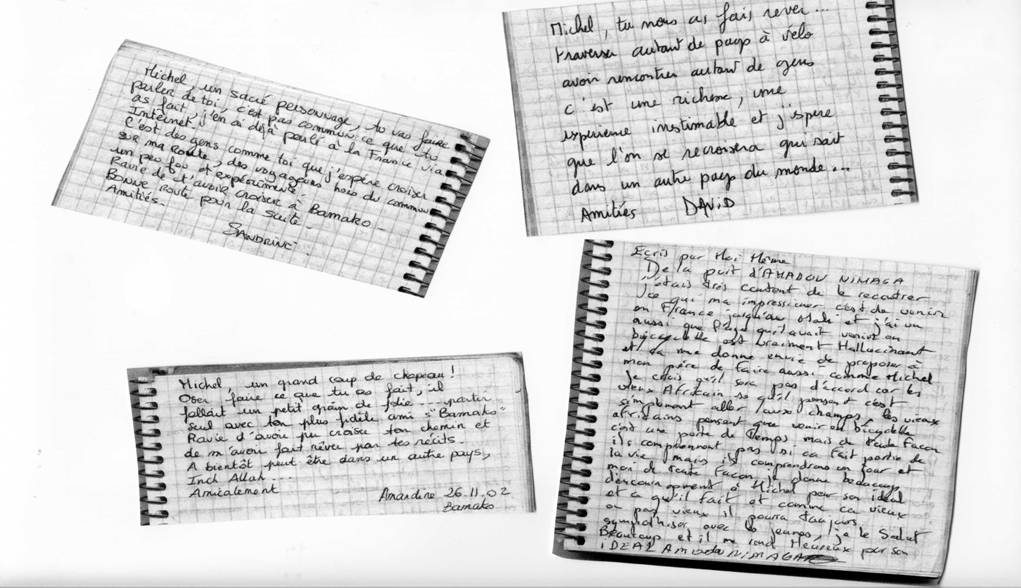 Michel, un sacré personnage, tu vas faire
parler de toi, c'est pas commun ce que tu
as fait, j'en ai déjà parlé à la France via
Internet.
C'est des gens comme toi que j'espère croiser
sur ma route, des voyageurs hors du commun
un peu fou et expérimenté
Ravie de t'avoir croiser à Bamako -
Bonne route pour la suite -
Amitiés.
SANDRINE
Michel, tu nous as fais rever ...
traverser autant de pays à vélo
avoir rencontrer autant de gens
c'est une richesse, une
experience inestimable et j'espere
que l'on se recroisera qui sait
dans un autre pays du monde...
Amitiés DAVID
Michel, un grand coup de chapeau !
Oser faire ce que tu as fait, il
fallait un petit grain de folie ... partir
seul avec ton plus fidèle ami "Bamako"
Ravie d'avoir pu croiser ton chemin et
de m'avoir fait rêver par tes récits -
A bientôt peut être dans un autre pays,
Inch Allah ...
Amicalement
Amandine 26.11.02
Bamako
Ecris par Moi Même
De la part d'AMADOU NIMAGA
J'étais très content de le recontrer
ce qui ma impressioner c'est de venir
en France jusqu'au et j'ai vu
aussi que l'age qu'il avait venir en
bicyclette est vraiment Hallucinant
et sa me donne envie de proposer à
mon père de faire aussi comme Michel
je crois qu'il sera pas d'accord car les
vieux Africain se qu'il pensent c'est
simplement aller aux champs, les vieux
africains pensent que venir en bicyclette
c'est une perte de temps mais de toute facon
ils comprennent pas si ca fait partie de
la vie mais ils comprendrons un jour et
moi de toute facon je donne beaucoup
d'encouragement à Michel pour son ideal
et ce qu'il fait et comme ca vieux
ou pas vieux il pourra toujours
sympathiser avec les jeunes, je le Salut
Beaucoup et il me rend Heureux par son
IDEAL Amadou NIMAGA